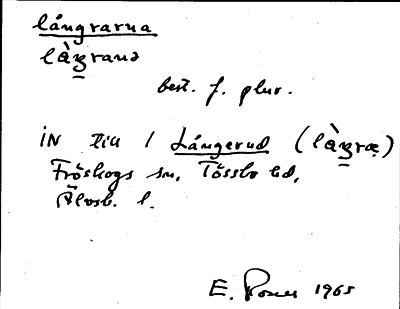 långrarna
làꞫrana
best. f. plur.
IN till / Långerud (làꞫræ)
Fröskogs sn, Tössbo hd,
Älvsb. l.
E. 1965